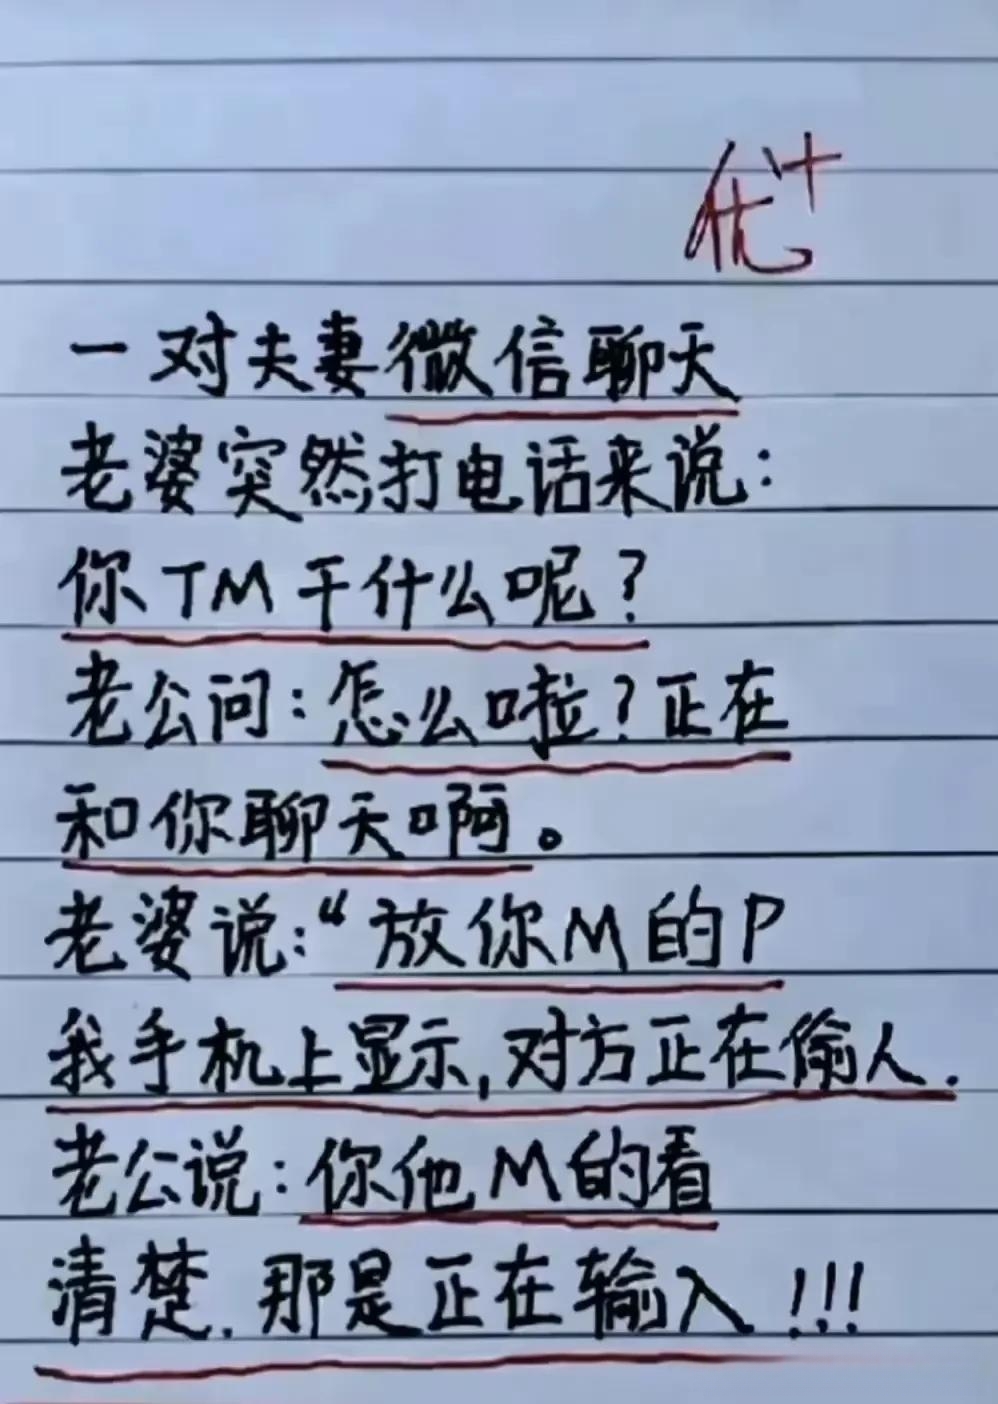 优+
一对夫妻微信聊天
老婆突然打电话来说：
你TM干什么呢？
老公问：怎么啦？正在
和你聊天啊。
老婆说：“放你M的P
我手机上显示，对方正在偷人.
老公说：你他M的看
清楚.那是正在输入!!!